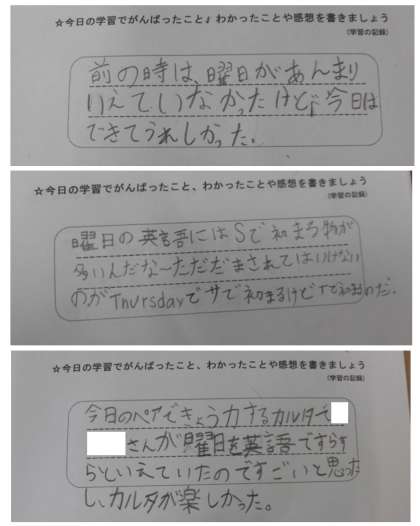 ☆今日の学習でがんばったこと、わかったことや感想を書きましょう
(学習の記録)
前の時は、曜日があんまり
いえていなかったけど、今日は
できてうれしかった。
☆今日の学習でがんばったこと、わかったことや感想を書きましょう
(学習の記録)
曜日の英語にはSで初まる物が
多いんだな〜ただだまされてはいけない
のがThursdayでサで初まるけどTで初めのだ。
☆今日の学習でがんばったこと、わかったことや感想を書きましょう
(学習の記録)
今日のペアできょう力するカルタで
さんが曜日を英語ですらす
らといえていたのですごいと思った
し、カルタが楽しかった。